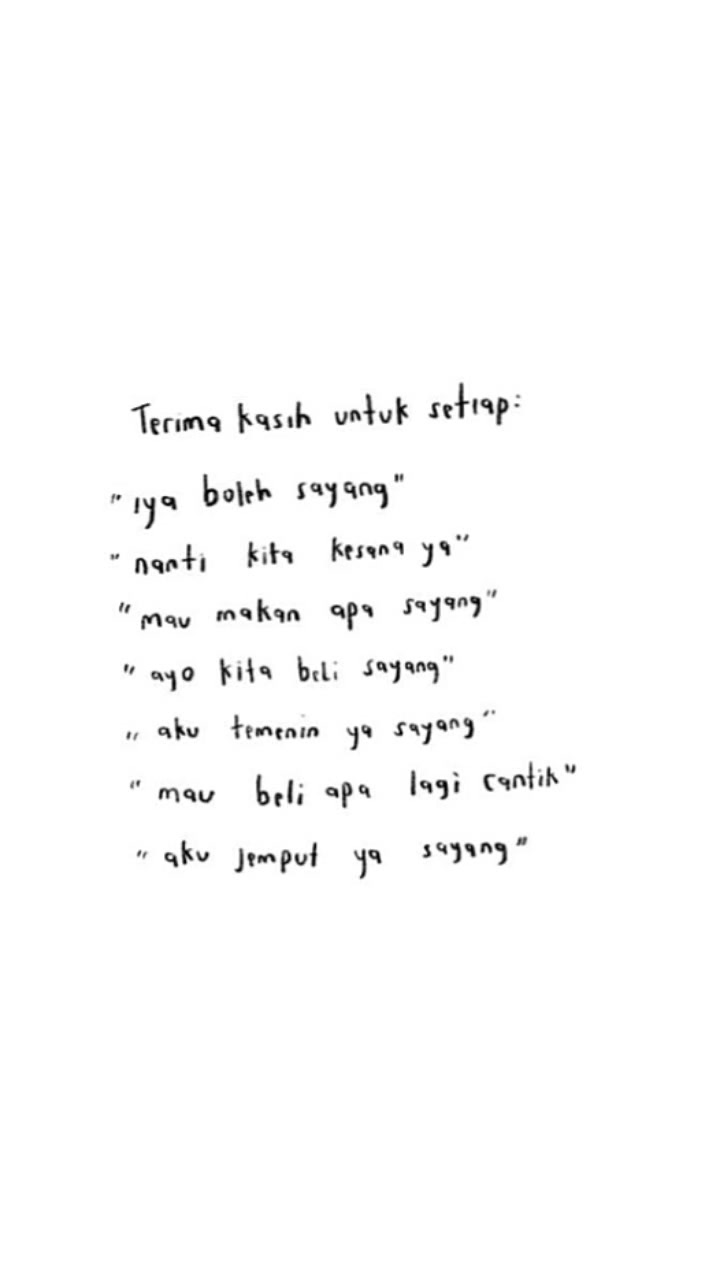 Terima kasih untuk setiap:
"iya boleh sayang"
"nanti kita kesana ya"
"mau makan apa sayang"
"ayo kita beli sayang"
"aku temenin ya sayang"
"mau beli apa lagi cantik"
"aku jemput ya sayang"